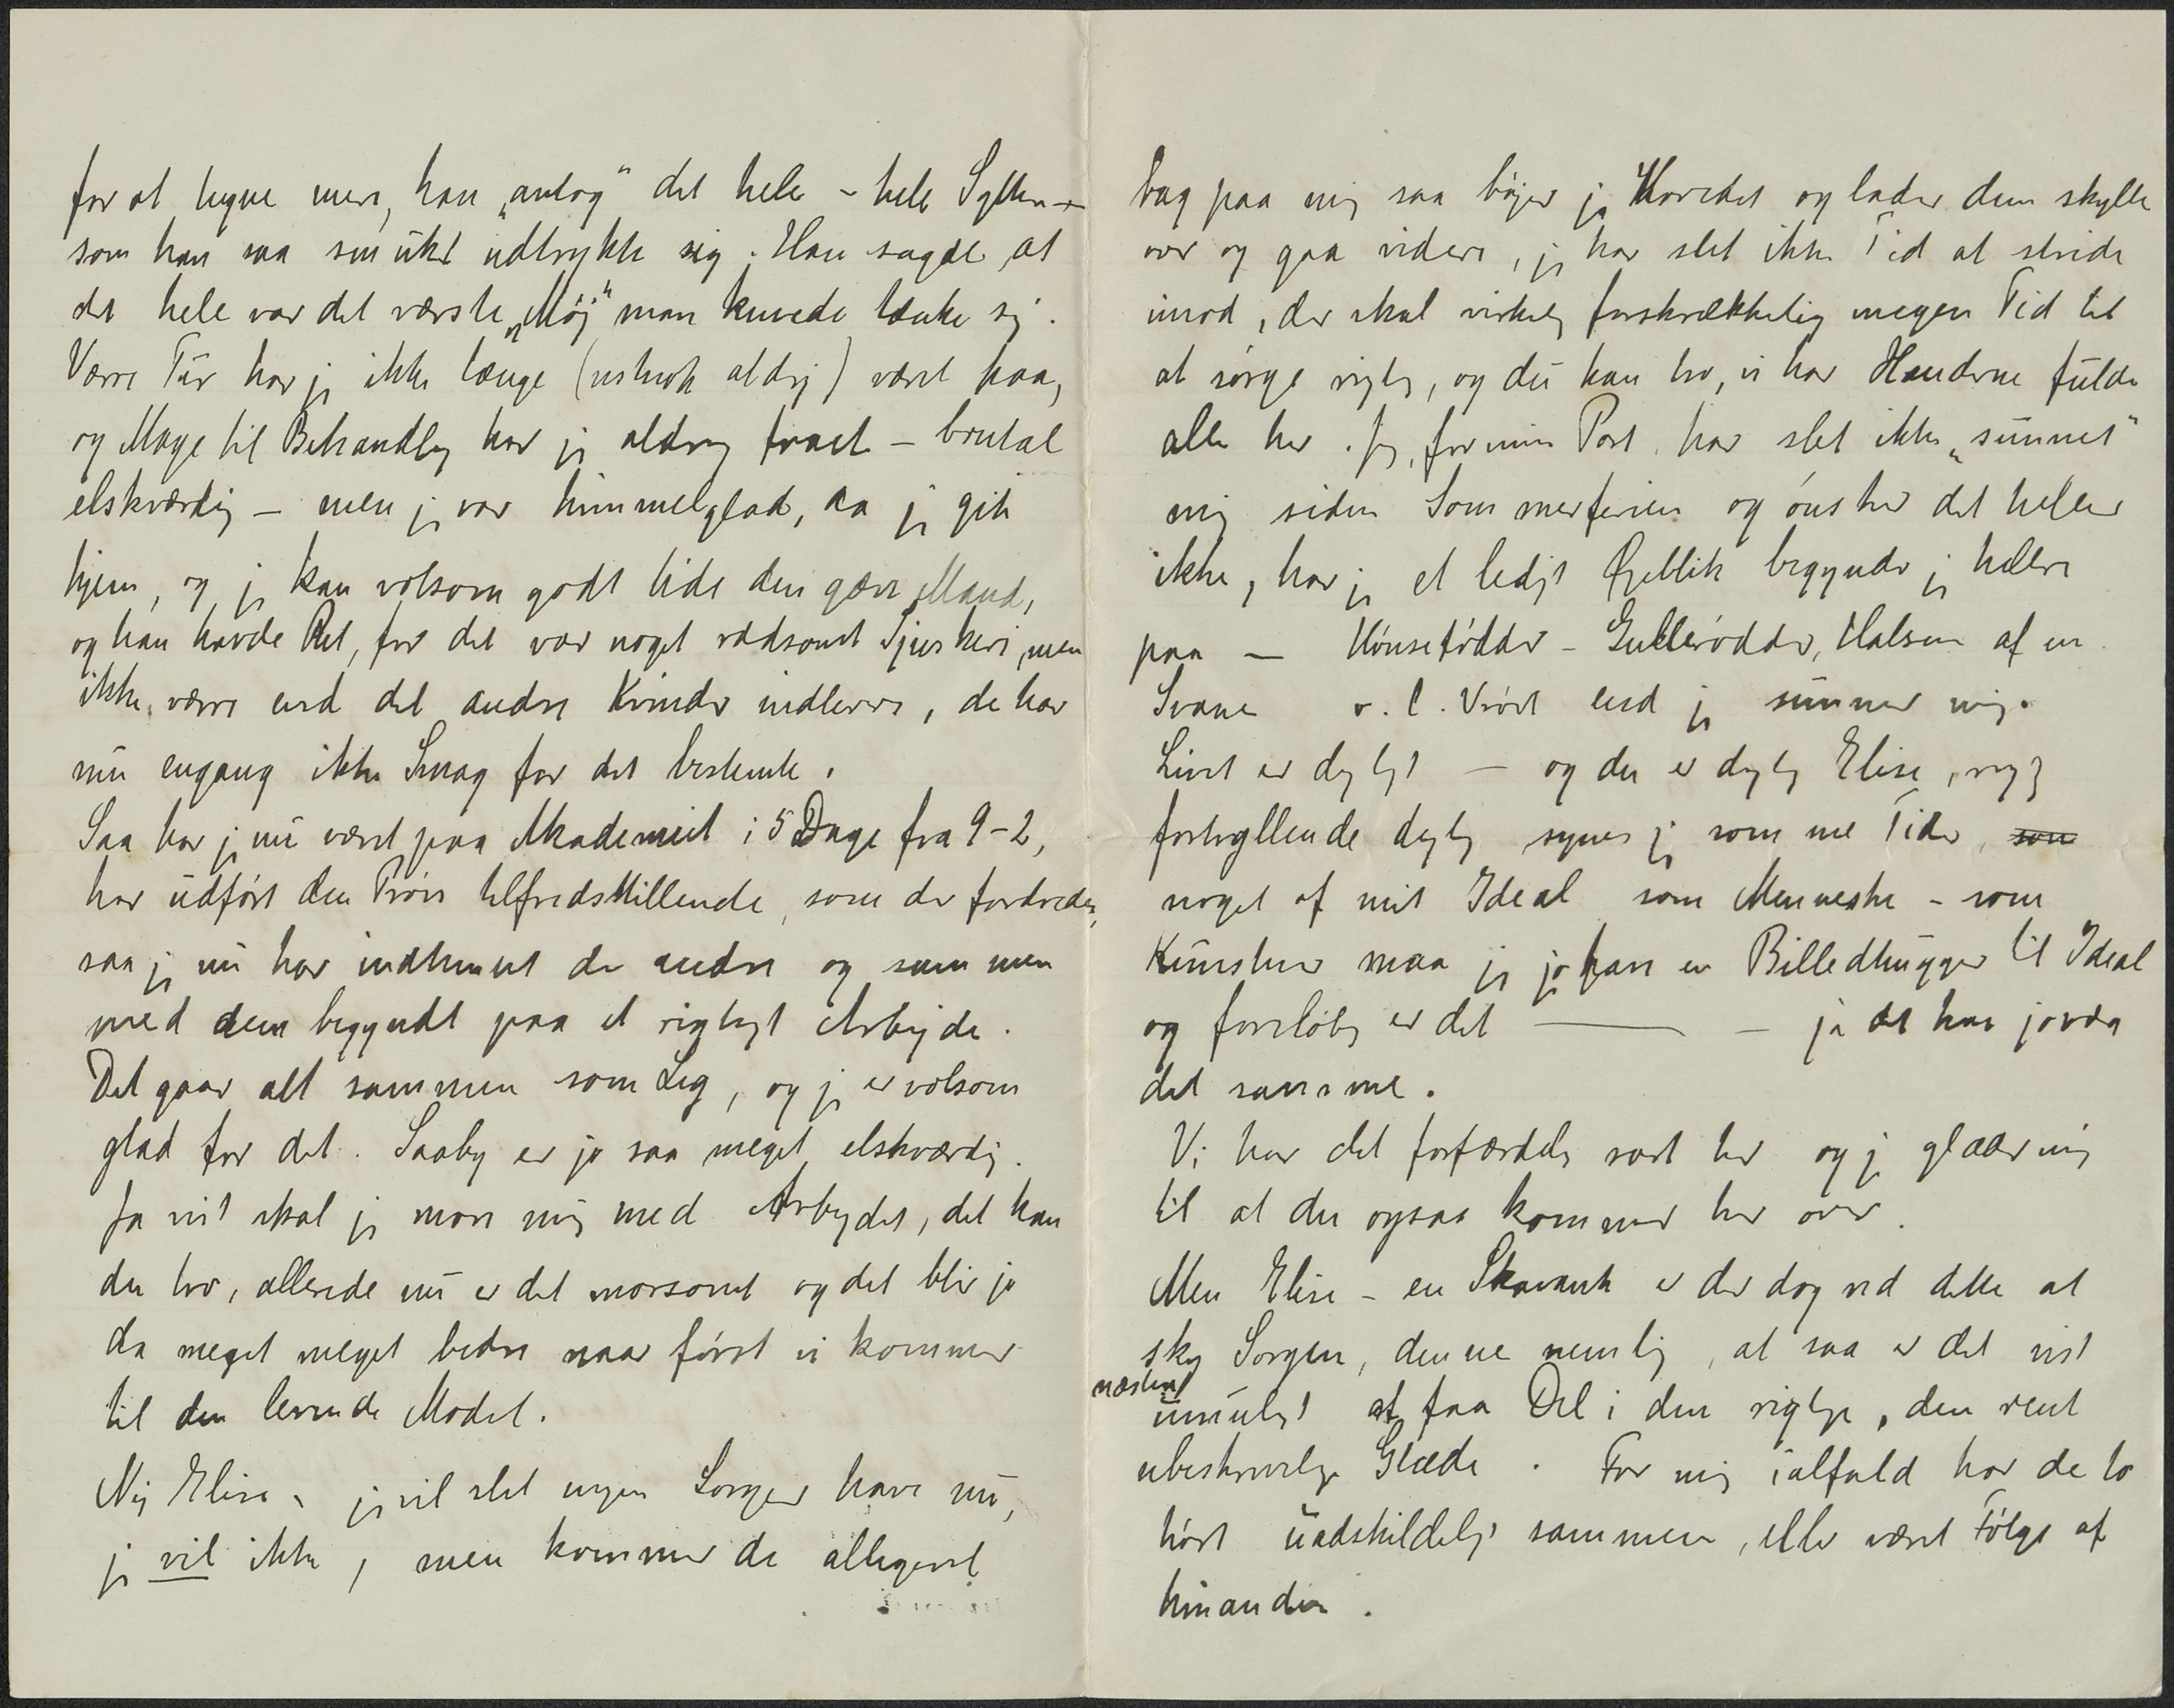 for at tegne mere, han „antog" det hele – hele Sylten –
som han saa smukt udtrykte sig. Han sagde, at
det hele var det værste „Møj" man kunede tænke sig.
Værre Tur har jeg ikke længe (vistnok aldrig) været paa,
og Mage til Behandling har jeg aldrig faaet – brutal
elskværdig – men jeg var himmelglad, da jeg gik
hjem, og jeg kan volsom godt lide den gære Mand,
og han havde Ret, for det var noget rædsomt Sjuskeri, men
ikke værre end det andre Kvinder indlevere, de har
nu engang ikke Smag for det bestemte.
Saa har jeg nu været paa Akademiet i 5 Dage fra 9–2,
har udført den Prøve tilfredsstillende, som der fordredes,
saa jeg nu har indhentet de andre og sammen
med dem begyndt paa et rigtigt Arbejde.
Det gaar alt sammen som Leg, og jeg er volsom
glad for det. Saaby er jo saa meget elskværdig.
Ja vist skal jeg more mig med Arbejdet, det kan
du tro, allerede nu er det morsomt og det blir jo
da meget meget bedre naar først vi kommer
til den levende Model.
Nej Elise, jeg vil slet ingen Sorger have nu,
jeg vil ikke, men kommer de alligevel
bag paa mig saa bøjer jeg Hovedet og lader dem skylle
over og gaa videre, jeg har slet ikke Tid at stride
imod, der skal virkelig forskrækkelig megen Tid til
at sørge rigtig, og du kan tro, vi har Hænderne fulde
alle her. Jeg, for min Part, har slet ikke „summet"
mig siden Sommerferien og ønsker det heller
ikke, har jeg et ledigt Øjeblik begynder jeg hellere
paa – Hønsefødder – Gulerødder, Halsen af en
Svane o. l. Værd end jeg summer mig.
Livet er dejligt – og du er dejlig Elise, rigtig
fortryllende dejlig synes jeg somme Tider, som
noget af mit Ideal som Menneske – som
Kunstner maa jeg jo have en Billedhugger til Ideal
og foreløbig er det ——— – ja det kan jo være
det samme.
Vi har det forfærdelig rart her og jeg glæder mig
til at du ogsaa kommer her over.
Men Elise – en Skavank er der dog ved dette at
sky Sorgen, denne nemlig, at saa er det vist
næsten
umuligt at faa Del i den rigtige, den rent
ubeskrivelige Glæde. For mig ialfald har de to
hørt uadskildeligt sammen, eller været Følge af
hinanden.